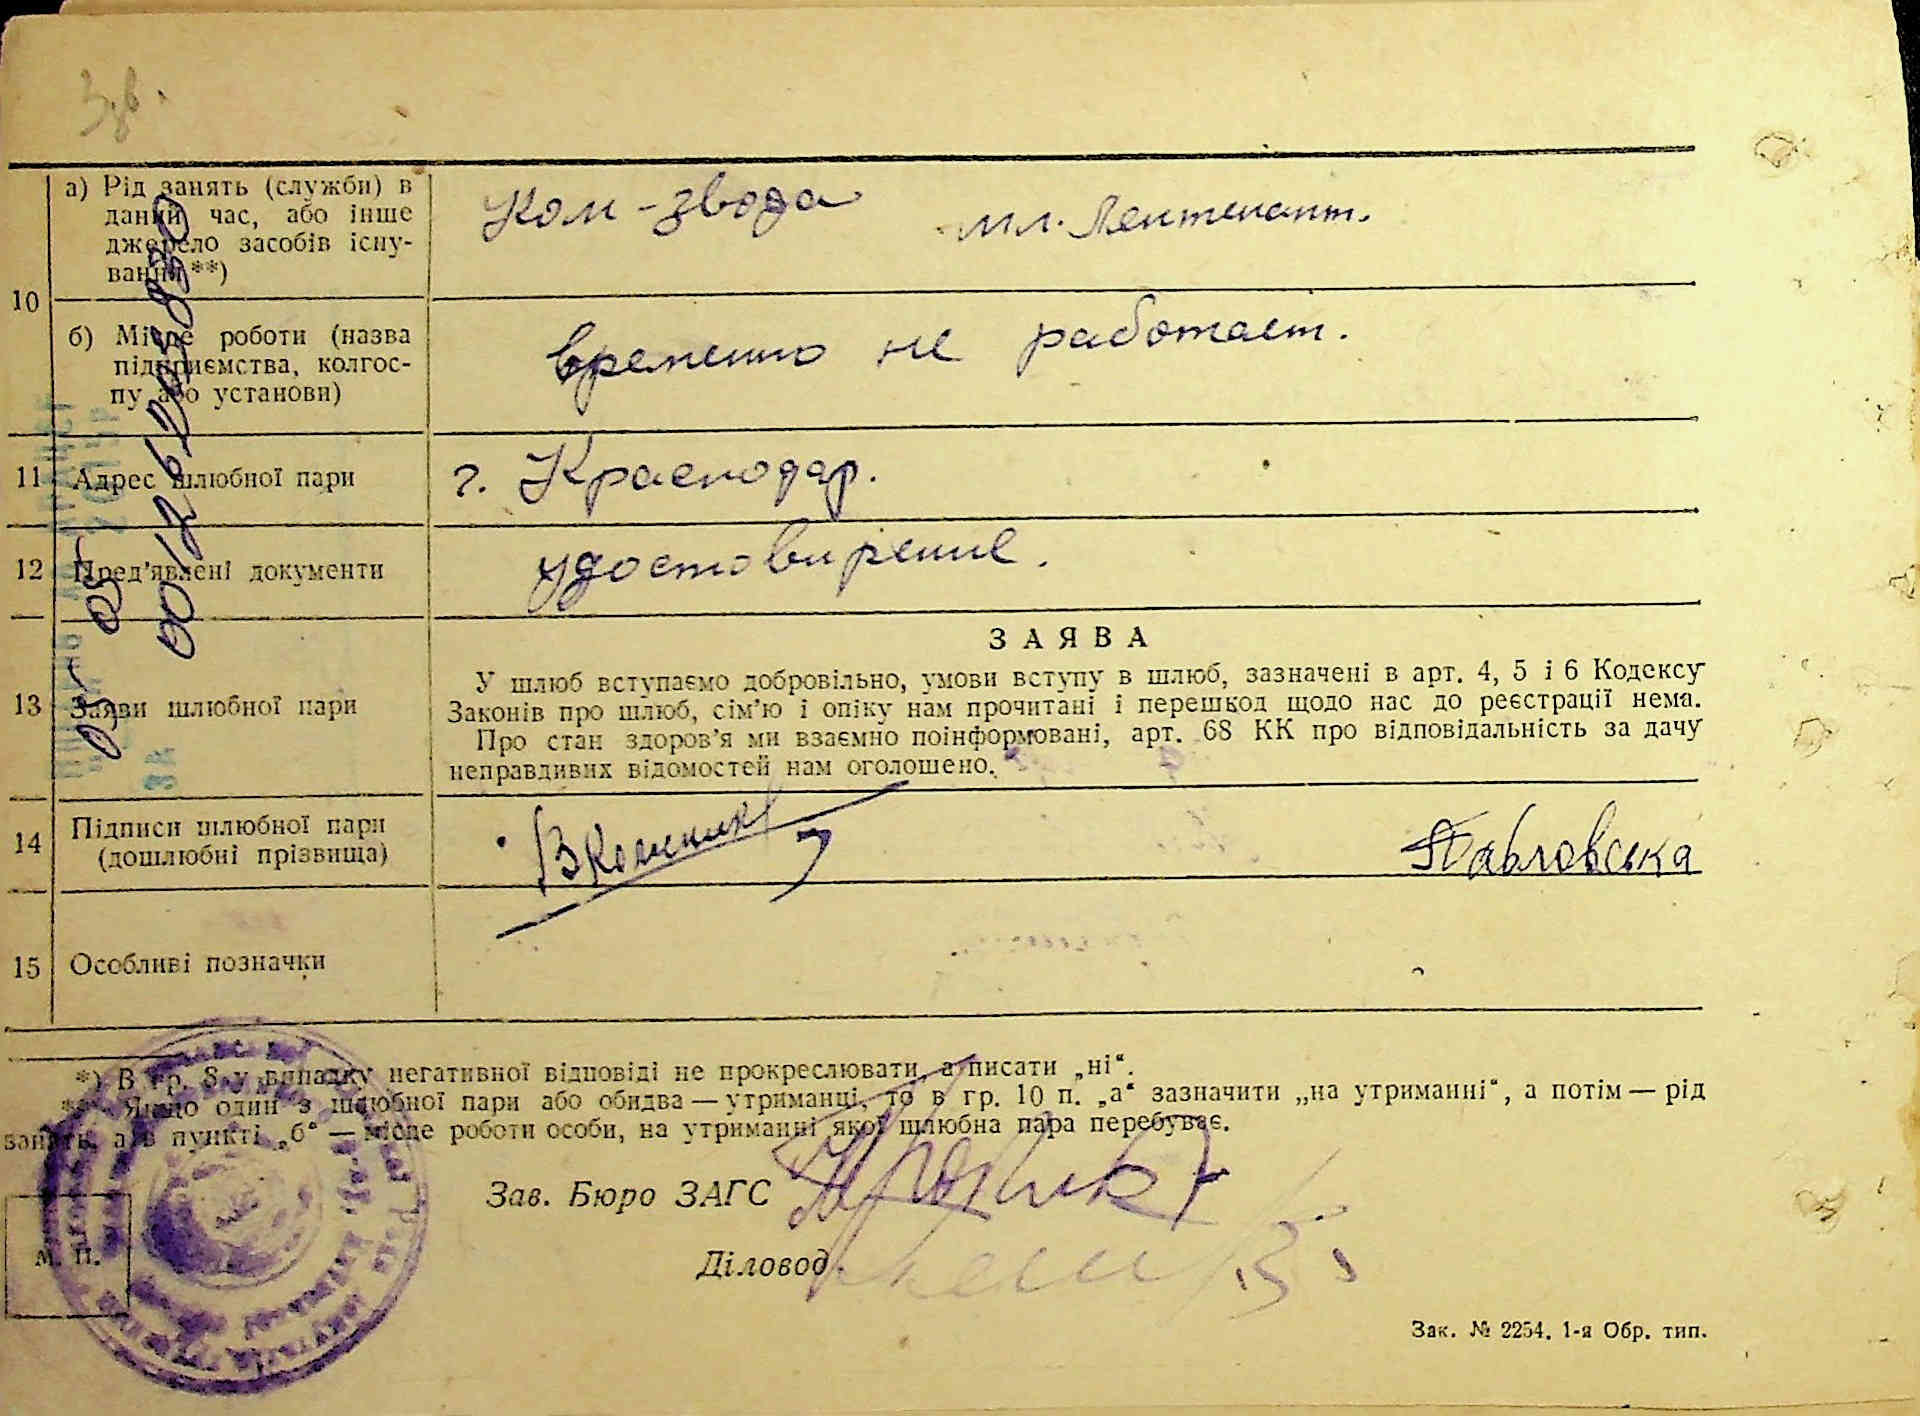 Зув.
а) Рід занять (служби) в
даний час, або інше
джерело засобів існу-
вання**)
Ком-звода мл. Лентенант.
10
б) Місце роботи (назва
підприємства, колгос-
пу або установи)
временно не работает.
11 Адрес шлюбної пари г. Краснодар.
12 Пред'явлені документи удостовирение.
13 Заяви шлюбної пари
ЗАЯВА
У шлюб вступаємо добровільно, умови вступу в шлюб, зазначені в арт. 4, 5 і 6 Кодексу
Законів про шлюб, сім'ю і опіку нам прочитані і перешкод щодо нас до реєстрації нема.
Про стан здоров'я ми взаємно поінформовані, арт. 68 КК про відповідальність за дачу
неправдивих відомостей нам оголошено.
14 Підписи шлюбної пари
(дошлюбні прізвища)
Павловська
15 Особливі позначки
*) В гр. 8 у випадку негативної відповіді не прокреслювати, а писати „ні“.
**) Якщо один з шлюбної пари або обидва — утриманці, то в гр. 10 п. „а“ зазначити „на утриманні“, а потім — рід
занять, а в пункті „б“ — місце роботи особи, на утриманні якої шлюбна пара перебуває.
Зав. Бюро ЗАГС
Діловод
М. П.
Зак. № 2254. 1-я Обр. тип.